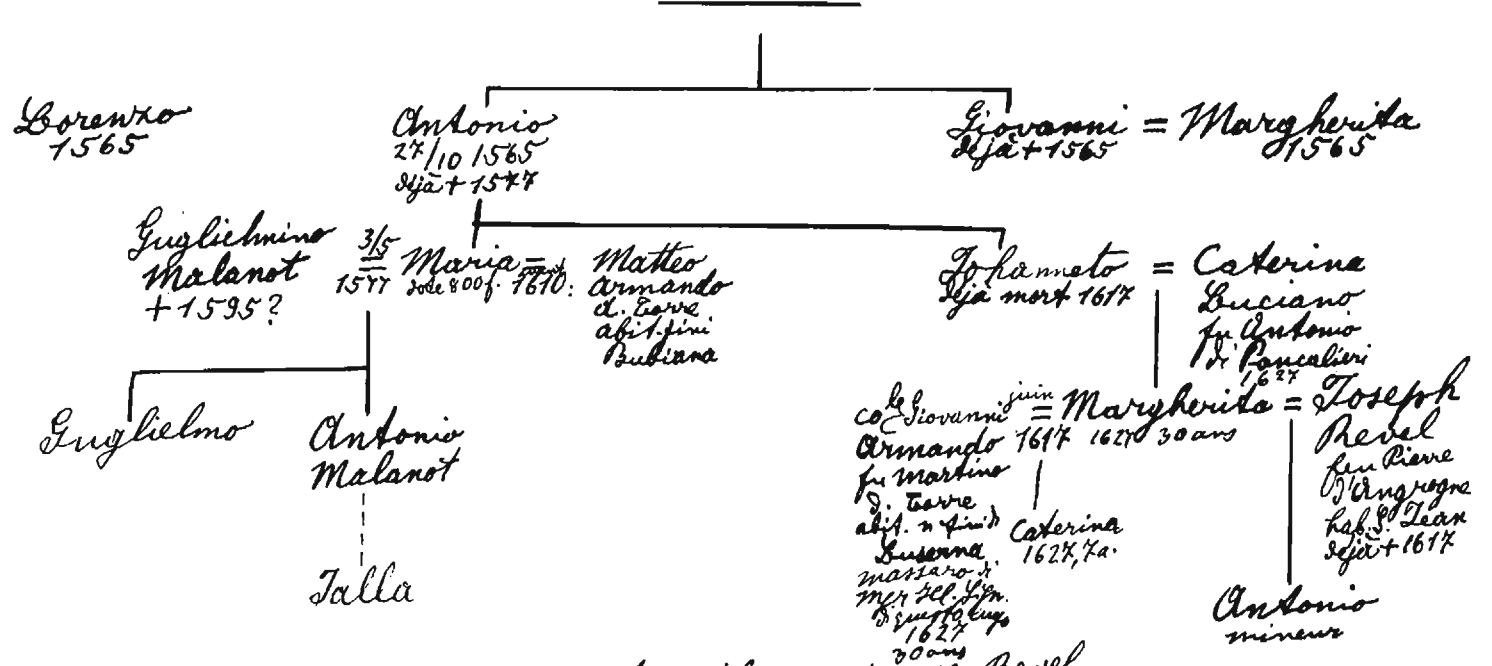 Lorenzo
1565
Antonio
27/10 1565
dejà + 1577
Giovanni = Margherita
dejà + 1565
1565
Guglielmino
Malanot
+ 1595?
3/5
1577
= Maria =
dote 800 f. 1610:
Matteo
Armando
d. Torre
abit. fini
Bubiana
Johanneto = Caterina
dejà mort 1617
Luciano
fu Antonio
di Pancalieri
1627
Guglielmo
Antonio
Malanot
Jalla
Giovanni
Armando
fu Martino
d. Torre
abit. n fini di
Luserna
massaro di
di questo
1627
30 ans
juin
= Margherita = Joseph
1617 1627 30 ans
Revel
feu Pierre
d'Angrogne
hab. S. Jean
dejà + 1617
Caterina
1627, 7a.
Antonio
mineur
Revel